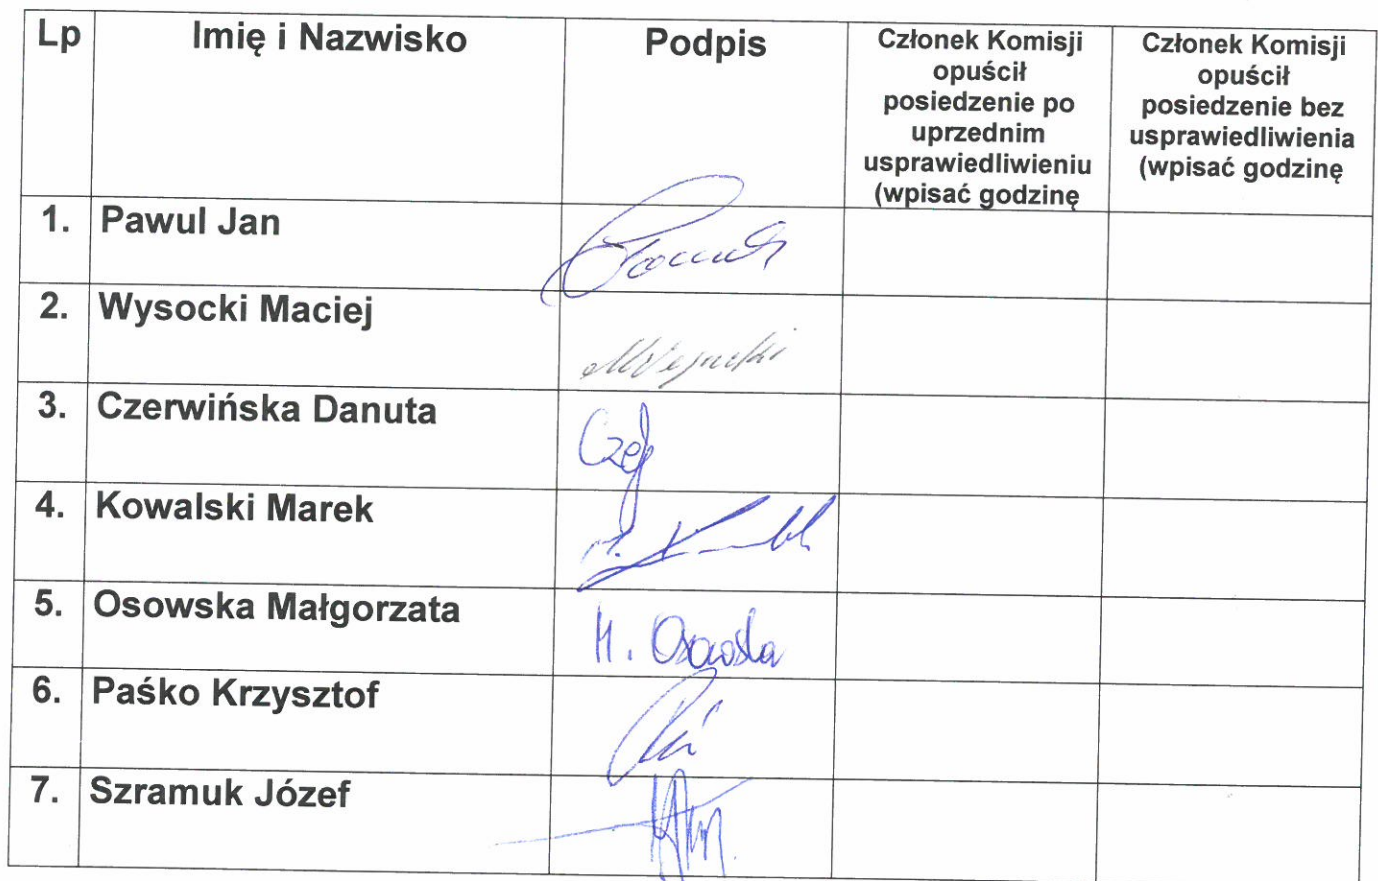 Lp
Imię i Nazwisko
Podpis
Członek Komisji
opuścił
posiedzenie po
uprzednim
usprawiedliwieniu
(wpisać godzinę
Członek Komisji
opuścił
posiedzenie bez
usprawiedliwienia
(wpisać godzinę
1. Pawul Jan
2. Wysocki Maciej
3. Czerwińska Danuta
4. Kowalski Marek
5. Osowska Małgorzata M. Osowska
6. Paśko Krzysztof
7. Szramuk Józef